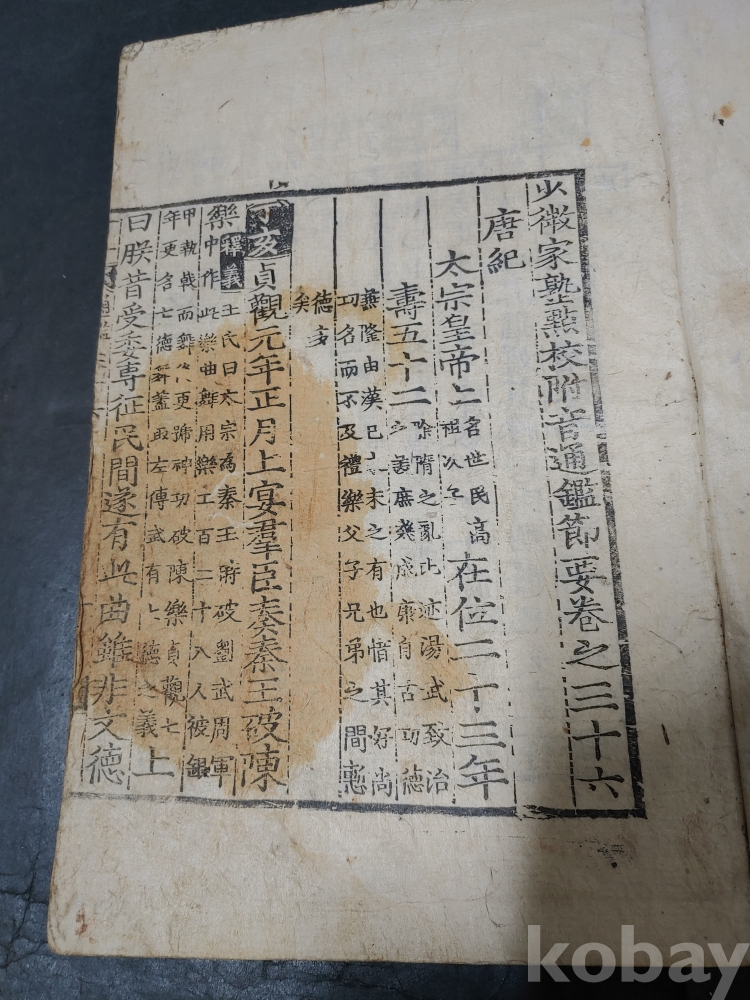 少微家塾點校附音通鑑節要卷之三十六
唐紀
太宗皇帝上 名世民高祖次子 在位二十三年
壽五十二 除隋之亂比迹湯武致治之美庶幾成康自古功德
兼隆由漢已來未之有也惜其好尚功名而不及禮樂父子兄弟之間慙
德多矣
丁亥 貞觀元年正月上宴羣臣奏秦王破陳
樂 釋義 王氏曰太宗為秦王時破劉武周軍中作此樂曲舞用樂工百二十八人被銀
甲執戟而舞後更號神功破陳樂貞觀七年更名七德舞蓋取左傳武有七德之義 上
曰朕昔受委專征民間遂有此曲雖非文德
kobay